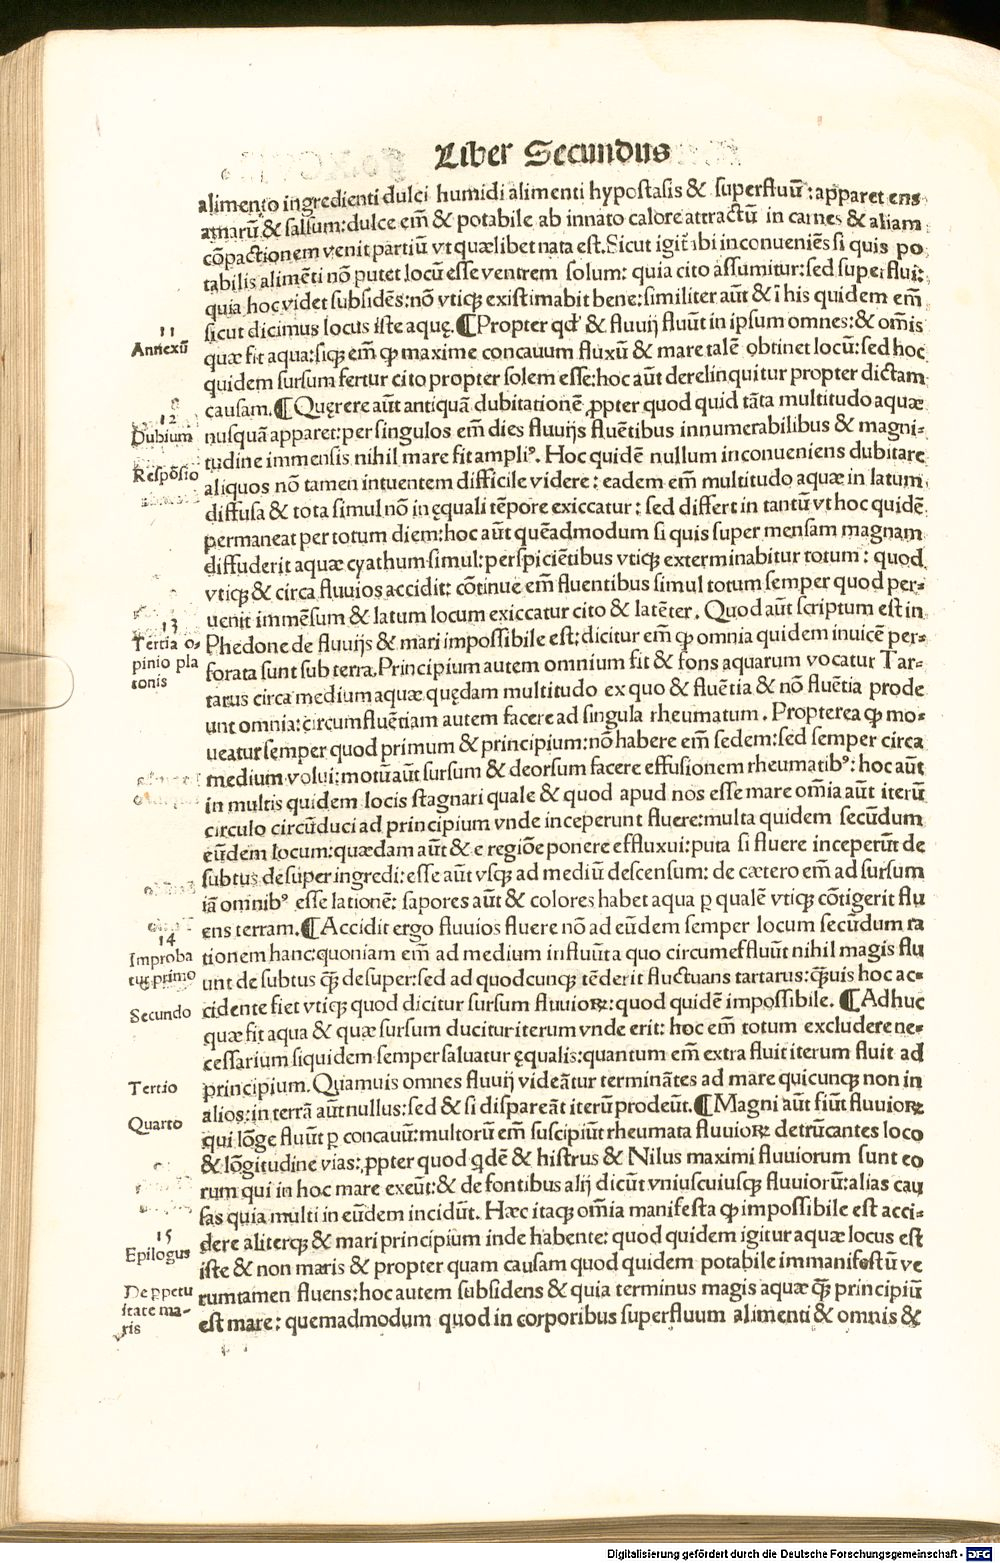 Liber Secundus
alimento ingredienti dulci humidi alimenti hypostasis & superfluũ: apparet ens
amarũ & salsum: dulce em̃ & potabile ab innato calore attractũ in carnes & aliam
cõpactionem venit partiũ vt quælibet nata est. Sicut igit̃ ibi inconueniẽs si quis po
tabilis alimẽti nõ putet locũ esse ventrem solum: quia cito assumitur: sed superflui:
quia hoc videt subsidẽs: nõ vtiqꝫ existimabit bene: similiter aũt & ĩ his quidem em̃
sicut dicimus locus iste aquę. ¶Propter qđ & fluuij fluũt in ipsum omnes: & om̃is
11
Annexũ
quæ fit aqua: siqꝫ em̃ ꝙ maxime concauum fluxũ & mare talẽ obtinet locũ: sed hoc
quidem sursum fertur cito propter solem esse: hoc aũt derelinquitur propter dictam
causam. ¶Quęrere aũt antiquã dubitationẽ ꝓpter quod quid tãta multitudo aquæ
12
Dubium
nusquã apparet: per singulos em̃ dies fluuijs fluẽtibus innumerabilibus & magni-
tudine immensis nihil mare fit ampliꝰ. Hoc quidẽ nullum inconueniens dubitare
Respõsio
aliquos nõ tamen intuentem difficile videre: eadem em̃ multitudo aquæ in latum
diffusa & tota simul nõ in ęquali tẽpore exiccatur: sed differt in tantũ vt hoc quidẽ
permaneat per totum diem: hoc aũt quẽadmodum si quis super mensam magnam
diffuderit aquæ cyathum simul: perspiciẽtibus vtiqꝫ exterminabitur totum: quod
vtiqꝫ & circa fluuios accidit: cõtinue em̃ fluentibus simul totum semper quod per-
uenit immẽsum & latum locum exiccatur cito & latẽter. Quod aũt scriptum est in
13
Tertia o-
pinio pla
tonis
Phedone de fluuijs & mari impossibile est: dicitur em̃ ꝙ omnia quidem inuicẽ per-
forata sunt sub terra. Principium autem omnium fit & fons aquarum vocatur Tar-
tarus circa medium aquæ quędam multitudo ex quo & fluẽtia & nõ fluẽtia prode
unt omnia: circumfluẽtiam autem facere ad singula rheumatum. Propterea ꝙ mo-
ueatur semper quod primum & principium: nõ habere em̃ sedem: sed semper circa
medium volui: motũ aũt sursum & deorsum facere effusionem rheumatibꝰ: hoc aũt
in multis quidem locis stagnari quale & quod apud nos esse mare om̃ia aũt iterũ
circulo circũduci ad principium vnde inceperunt fluere: multa quidem secũdum
eũdem locum: quædam aũt & e regiõe ponere effluxui: puta si fluere inceperũt de
subtus desuper ingredi: esse aũt vsqꝫ ad mediũ descensum: de cætero em̃ ad sursum
iã omnibꝰ esse lationẽ: sapores aũt & colores habet aqua ꝑ qualẽ vtiqꝫ cõtigerit flu
ens terram. ¶Accidit ergo fluuios fluere nõ ad eũdem semper locum secũdum ra
14
Improba
tur primo
tionem hanc: quoniam em̃ ad medium influũt a quo circumeffluũt nihil magis flu
unt de subtus q̃ꝫ desuper: sed ad quodcunqꝫ tẽderit fluctuans tartarus: q̃ꝫuis hoc ac-
Secundo
cidente fiet vtiqꝫ quod dicitur sursum fluuioꝝ: quod quidẽ impossibile. ¶Adhuc
quæ fit aqua & quæ sursum ducitur iterum vnde erit: hoc em̃ totum excludere ne-
cessarium siquidem semper saluatur ęqualis: quantum em̃ extra fluit iterum fluit ad
Tertio
principium. Quamuis omnes fluuij videãtur terminãtes ad mare quicunqꝫ non in
alios: in terrã aũt nullus: sed & si dispareãt iterũ prodeũt. ¶Magni aũt fiũt fluuioꝝ
Quarto
qui lõge fluũt ꝑ concauũ: multorũ em̃ suscipiũt rheumata fluuioꝝ detrũcantes loco
& lõgitudine vias: ꝓpter quod qdẽ & histrus & Nilus maximi fluuiorum sunt eo
rum qui in hoc mare exeũt: & de fontibus alij dicũt vniuscuiusqꝫ fluuiorũ: alias cau
sas quia multi in eũdem incidũt. Hæc itaqꝫ om̃ia manifesta ꝙ impossibile est acci-
15
Epilogus
dere aliterqꝫ & mari principium inde habente: quod quidem igitur aquæ locus est
iste & non maris & propter quam causam quod quidem potabile immanifestũ ve
De ꝑpetu
itate ma-
ris
rumtamen fluens: hoc autem subsidens & quia terminus magis aquæ q̃ꝫ principiũ
est mare: quemadmodum quod in corporibus superfluum alimenti & omnis &
Digitalisierung gefördert durch die Deutsche Forschungsgemeinschaft - DFG